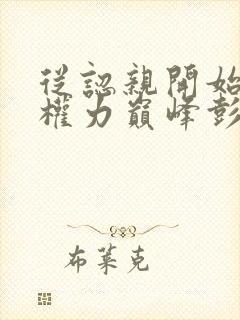 從認親開始
權力巔峰彭
布萊克